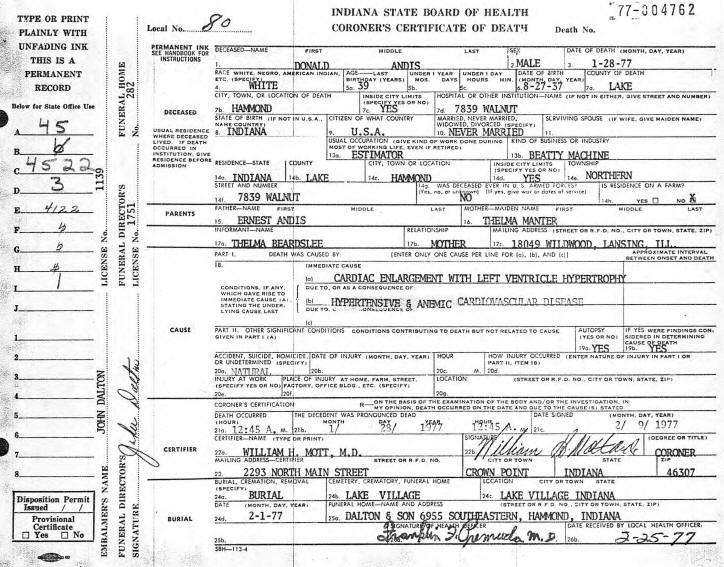 TYPE OR PRINT
PLAINLY WITH
UNFADING INK
THIS IS A
PERMANENT
RECORD
Below for State Office Use
A 45
B 6
C 4522
D 3
E 4122
F
G
H
I 1
J
1.
2.
3.
4.
5.
6.
7.
8.
Disposition Permit
Issued / /
Provisional
Certificate
☐ Yes ☐ No
EMBALMER'S NAME JOHN DALTON LICENSE No. 1139
FUNERAL DIRECTOR'S SIGNATURE FUNERAL DIRECTOR'S LICENSE No. 1751 FUNERAL HOME No. 282
Local No. 80
INDIANA STATE BOARD OF HEALTH
CORONER'S CERTIFICATE OF DEATH
Death No. 77-004762
PERMANENT INK
SEE HANDBOOK FOR
INSTRUCTIONS
DECEASED—NAME FIRST MIDDLE LAST SEX DATE OF DEATH (MONTH, DAY, YEAR)
1. DONALD ANDIS 2. MALE 3. 1-28-77
RACE WHITE, NEGRO, AMERICAN INDIAN, ETC. (SPECIFY) AGE—LAST BIRTHDAY (YEARS) UNDER 1 YEAR MOS. DAYS UNDER 1 DAY HOURS MIN. DATE OF BIRTH (MONTH, DAY, YEAR) COUNTY OF DEATH
4. WHITE 5a. 39 6. 8-27-37 7a. LAKE
DECEASED
CITY, TOWN, OR LOCATION OF DEATH INSIDE CITY LIMITS (SPECIFY YES OR NO) HOSPITAL OR OTHER INSTITUTION—NAME (IF NOT IN EITHER, GIVE STREET AND NUMBER)
7b. HAMMOND 7c. YES 7d. 7839 WALNUT
USUAL RESIDENCE WHERE DECEASED LIVED. IF DEATH OCCURRED IN INSTITUTION, GIVE RESIDENCE BEFORE ADMISSION
STATE OF BIRTH (IF NOT IN U.S.A., NAME COUNTRY) CITIZEN OF WHAT COUNTRY MARRIED, NEVER MARRIED, WIDOWED, DIVORCED (SPECIFY) SURVIVING SPOUSE (IF WIFE, GIVE MAIDEN NAME)
8. INDIANA 9. U.S.A. 10. NEVER MARRIED 11.
USUAL OCCUPATION (GIVE KIND OF WORK DONE DURING MOST OF WORKING LIFE, EVEN IF RETIRED) KIND OF BUSINESS OR INDUSTRY
13a. ESTIMATOR 13b. BEATTY MACHINE
RESIDENCE—STATE COUNTY CITY, TOWN OR LOCATION INSIDE CITY LIMITS (SPECIFY YES OR NO) TOWNSHIP
14a. INDIANA 14b. LAKE 14c. HAMMOND 14d. YES 14e. NORTHERN
STREET AND NUMBER 14g. WAS DECEASED EVER IN U. S. ARMED FORCES? (Yes, no, or unknown) (If yes, give war or dates of service) IS RESIDENCE ON A FARM?
14f. 7839 WALNUT NO 14h. YES ☐ NO ☒
PARENTS
FATHER—NAME FIRST MIDDLE LAST MOTHER—MAIDEN NAME FIRST MIDDLE LAST
15. ERNEST ANDIS 16. THELMA MANTER
INFORMANT—NAME RELATIONSHIP MAILING ADDRESS (STREET OR R.F.D. NO., CITY OR TOWN, STATE, ZIP)
17a. THELMA BEARDSLEE 17b. MOTHER 17c. 18049 WILDWOOD, LANSING, ILL
PART I. DEATH WAS CAUSED BY: [ENTER ONLY ONE CAUSE PER LINE FOR (a), (b), AND (c)] APPROXIMATE INTERVAL BETWEEN ONSET AND DEATH
18. IMMEDIATE CAUSE
(a) CARDIAC ENLARGEMENT WITH LEFT VENTRICLE HYPERTROPHY
CONDITIONS, IF ANY, WHICH GAVE RISE TO IMMEDIATE CAUSE (A), STATING THE UNDERLYING CAUSE LAST
DUE TO, OR AS A CONSEQUENCE OF:
(b) HYPERTENSIVE & ANEMIC CARDIOVASCULAR DISEASE
DUE TO,
(c)
CAUSE
PART II. OTHER SIGNIFICANT CONDITIONS CONDITIONS CONTRIBUTING TO DEATH BUT NOT RELATED TO CAUSE GIVEN IN PART I (A) AUTOPSY (YES OR NO) IF YES WERE FINDINGS CONSIDERED IN DETERMINING CAUSE OF DEATH
19a. YES 19b. YES
ACCIDENT, SUICIDE, HOMICIDE, OR UNDETERMINED (SPECIFY) DATE OF INJURY (MONTH, DAY, YEAR) HOUR HOW INJURY OCCURRED (ENTER NATURE OF INJURY IN PART I OR PART II, ITEM 18)
20a. NATURAL 20b. 20c. M. 20d.
INJURY AT WORK (SPECIFY YES OR NO) PLACE OF INJURY AT HOME, FARM, STREET, FACTORY, OFFICE BLDG., ETC. (SPECIFY) LOCATION (STREET OR R.F.D. NO., CITY OR TOWN, STATE, ZIP)
20e. 20f. 20g.
CORONER'S CERTIFICATION R—ON THE BASIS OF THE EXAMINATION OF THE BODY AND/OR THE INVESTIGATION, IN MY OPINION, DEATH OCCURRED ON THE DATE AND DUE TO THE CAUSE(S) STATED.
DEATH OCCURRED (HOUR) THE DECEDENT WAS PRONOUNCED DEAD MONTH DAY YEAR HOUR DATE SIGNED (MONTH, DAY, YEAR)
21a. 12:45 A. M. 21b. 1/ 28/ 1977 12:45 A. M 21c. 2/ 9/ 1977
CERTIFIER
CERTIFIER—NAME (TYPE OR PRINT) SIGNATURE (DEGREE OR TITLE)
22a. WILLIAM H. MOTT, M.D. 22b. CORONER
MAILING ADDRESS—CERTIFIER STREET OR R.F.D. NO. CITY OR TOWN STATE ZIP
22. 2293 NORTH MAIN STREET CROWN POINT INDIANA 46307
BURIAL
BURIAL, CREMATION, REMOVAL (SPECIFY) CEMETERY, CREMATORY, FUNERAL HOME LOCATION CITY OR TOWN STATE
24a. BURIAL 24b. LAKE VILLAGE 24c. LAKE VILLAGE INDIANA
DATE (MONTH, DAY, YEAR) FUNERAL HOME—NAME AND ADDRESS (STREET OR R.F.D. NO., CITY OR TOWN, STATE, ZIP)
24d. 2-1-77 25a. DALTON & SON 6955 SOUTHEASTERN, HAMMOND, INDIANA
SIGNATURE OF HEALTH OFFICER DATE RECEIVED BY LOCAL HEALTH OFFICER:
25b. M.D. 26b. 2-25-77
SBH—113-4